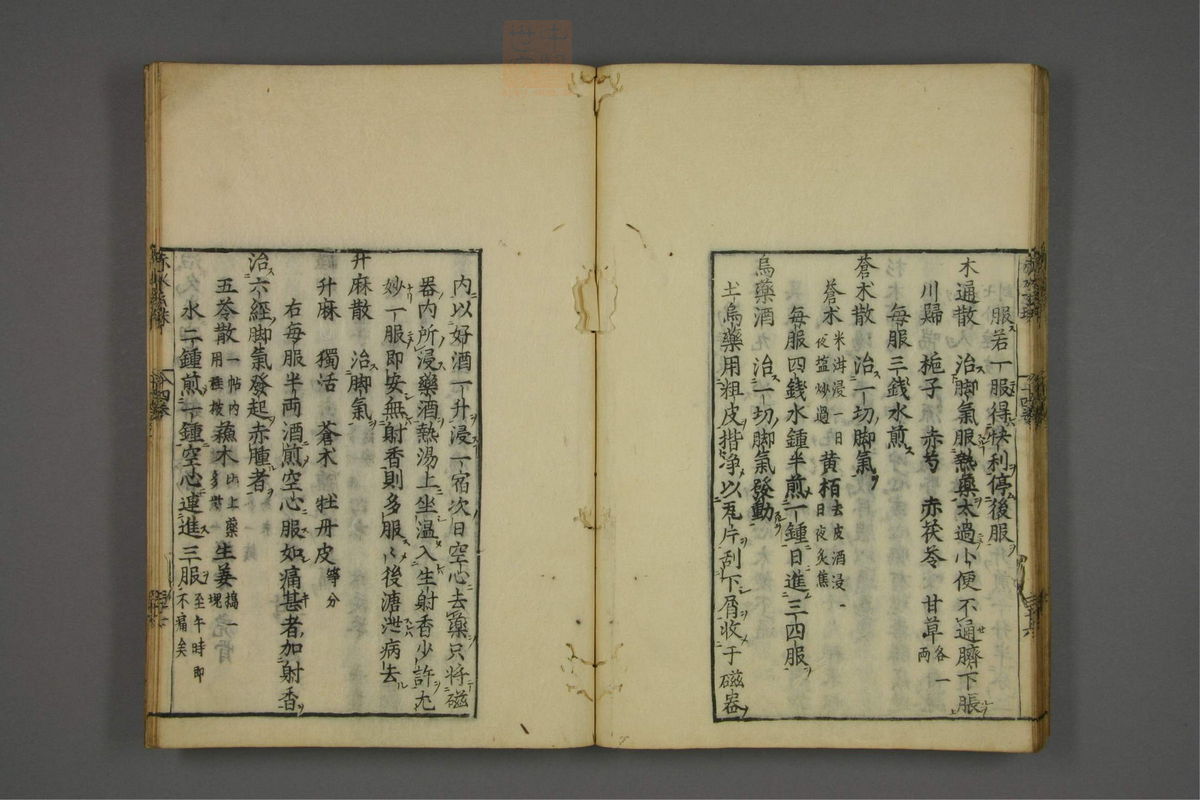 服若一服得快利停後服
木通散 治脚氣服熱藥太過小便不通臍下脹
川歸 梔子 赤芍 赤茯苓 甘草各一兩
每服三錢水煎
蒼朮散 治一切脚氣
蒼朮米泔浸一日夜塩炒過 黄栢去皮酒浸一日夜炙焦
每服四錢水鍾半煎一鍾日進三四服
烏藥酒 治一切脚氣發動
土烏藥用粗皮揩净以瓦片刮下屑收于磁器
内以好酒一升浸一宿次日空心去藥只将磁
器内所浸藥酒熱湯上坐温入生射香少許尤
妙一服即安無射香則多服〻後溏泄病去
升麻散 治脚氣
升麻 獨活 蒼朮 牡丹皮等分
右每服半両酒煎空心服如痛甚者加射香
治六經脚氣發起赤腫者
五苓散一帖内用桂枝 蘓木比上藥多対一 生姜搗一塊
水二鍾煎一鍾空心連進三服至午時即不痛矣